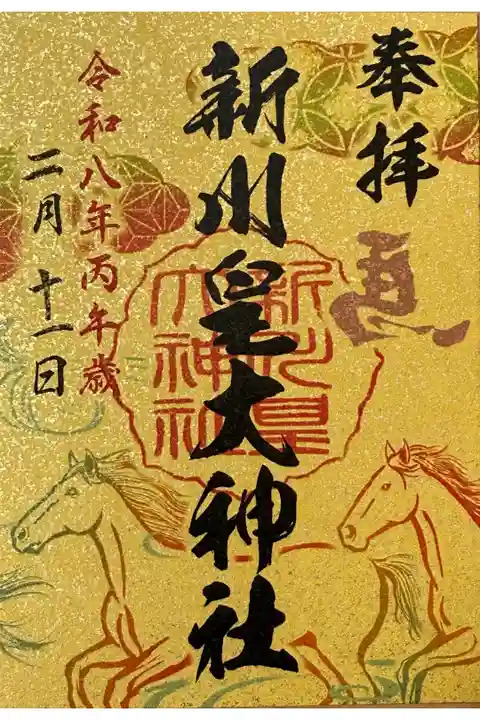 奉拝
新川皇大神社
新川皇大神社
令和八年丙午歳
二月十一日